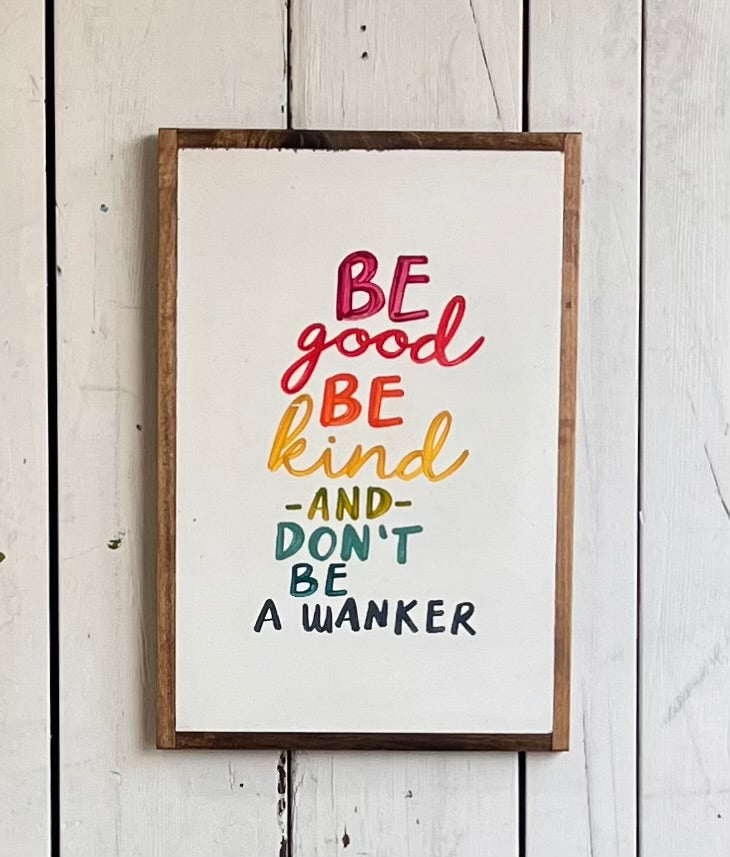 BE
good
BE
kind
-AND-
DON'T
BE
A WANKER